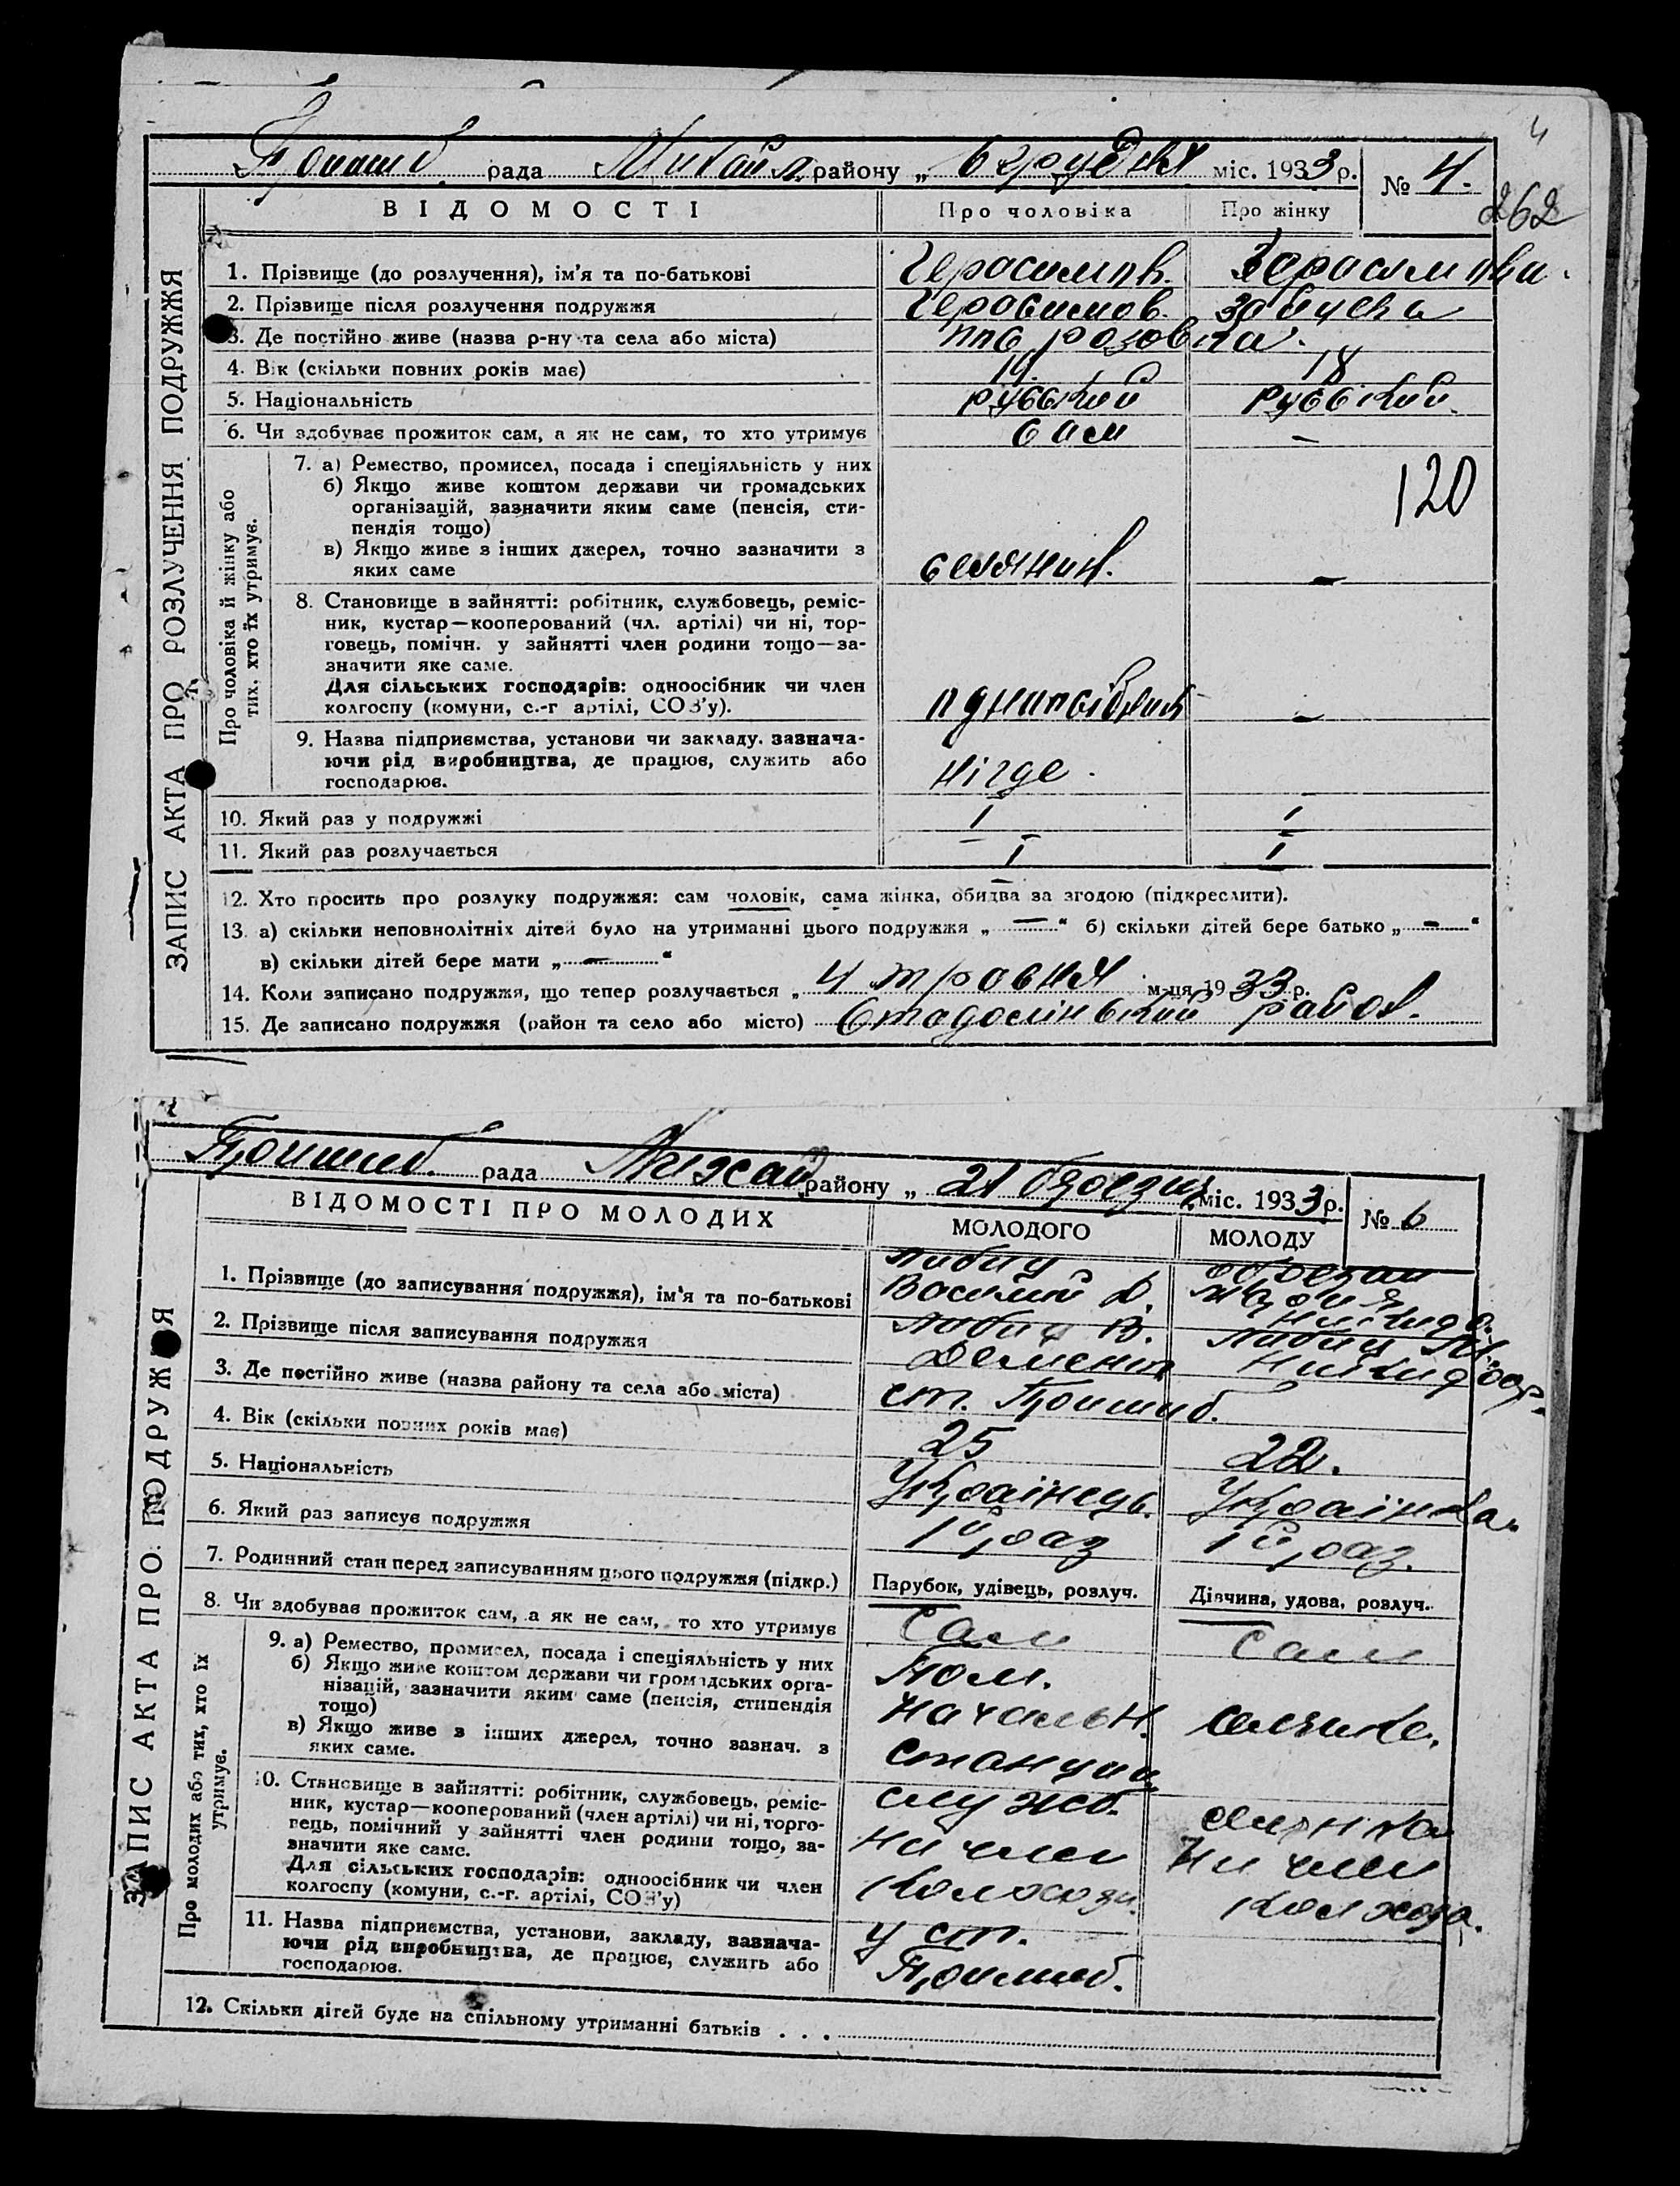 4
рада района „ 6 грудня міс. 1933 р. № 4.
262
ВІДОМОСТІ Про чоловіка Про жінку
ЗАПИС АКТА ПРО РОЗЛУЧЕННЯ ПОДРУЖЖЯ
1. Прізвище (до розлучення), ім'я та по-батькові Герасимов.
2. Прізвище після розлучення подружжя Герасимов.
3. Де постійно живе (назва р-ну та села або міста) розовка.
4. Вік (скільки повних років має) 19 18
5. Національність руський руський
6. Чи здобуває прожиток сам, а як не сам, то хто утримує сам —
Про чоловіка й жінку або тих, хто їх утримує.
7. а) Ремество, промисел, посада і спеціяльність у них
б) Якщо живе коштом держави чи громадських
організацій, зазначити яким саме (пенсія, сти-
пендія тощо)
120
в) Якщо живе з інших джерел, точно зазначити з
яких саме селянин. —
8. Становище в зайнятті: робітник, службовець, реміс-
ник, кустар—кооперований (чл. артілі) чи ні, тор-
говець, помічн. у зайнятті член родини тощо—за-
значити яке саме.
Для сільських господарів: одноосібник чи член
колгоспу (комуни, с.-г артілі, СОЗ'у). одноосібник —
9. Назва підприємства, установи чи закладу, зазнача-
ючи рід виробництва, де працює, служить або
господарює. нігде.
10. Який раз у подружжі I I
11. Який раз розлучається I I
12. Хто просить про розлуку подружжя: сам чоловік, сама жінка, обидва за згодою (підкреслити).
13. а) скільки неповнолітніх дітей було на утриманні цього подружжя „ — “ б) скільки дітей бере батько „ — “
в) скільки дітей бере мати „ — “
14. Коли записано подружжя, що тепер розлучається „ 4 травня м-ця 1933 р.
15. Де записано подружжя (район та село або місто) район.
рада Михай району „ 21 березня міс. 1933 р. № 6
ВІДОМОСТІ ПРО МОЛОДИХ МОЛОДОГО МОЛОДУ
ЗАПИС АКТА ПРО ПОДРУЖЖЯ
1. Прізвище (до записування подружжя), ім'я та по-батькові Василий Д.
2. Прізвище після записування подружжя
3. Де постійно живе (назва району та села або міста) ст. Пришиб.
4. Вік (скільки повних років має) 25 22.
5. Національність Українець. Українка.
6. Який раз записує подружжя 1й раз 1й раз.
7. Родинний стан перед записуванням цього подружжя (підкр.) Парубок, удівець, розлуч. Дівчина, удова, розлуч.
8. Чи здобуває прожиток сам, а як не сам, то хто утримує Сам Сам
Про молодих або тих, хто їх утримує.
9. а) Ремество, промисел, посада і спеціяльність у них
б) Якщо живе коштом держави чи громадських орга-
нізацій, зазначити яким саме (пенсія, стипендія
тощо)
в) Якщо живе з інших джерел, точно зазнач. з
яких саме.
Пом.
Начальн.
станции
10. Становище в зайнятті: робітник, службовець, реміс-
ник, кустар—кооперований (член артілі) чи ні, торго-
вець, помічний у зайнятті член родини тощо, за-
значити яке саме.
Для сільських господарів: одноосібник чи член
колгоспу (комуни, с.-г. артілі, СОЗ'у)
служб.
ни член ни член
колхоза. колхоза.
11. Назва підприємства, установи, закладу, зазнача-
ючи рід виробництва, де працює, служить або
господарює.
у ст.
Пришиб.
12. Скільки дітей буде на спільному утриманні батьків . . .